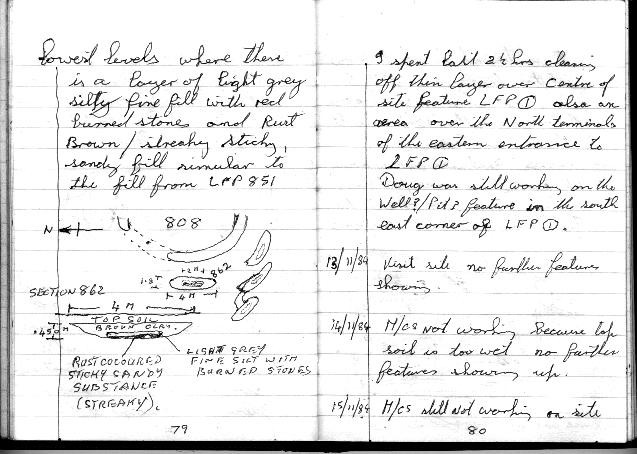 lowest levels where there
is a layer of light grey
silty fine fill with red
burned stones and Rust
Brown / streaky sticky,
sandy fill simular to
the fill from LPP 851
808
N
1.2M
862
1.3T
4M
SECTION 862
4M
TOP SOIL
BROWN CLAY
.45 M
RUST COLOURED
STICKY SANDY
SUBSTANCE
(STREAKY).
LIGHT GREY
FINE SILT WITH
BURNED STONES
79
I spent last 2½ hrs cleaning
off thin layer over Centre of
site feature LFP ① also an
area over the North terminals
of the eastern entrance to
LFP ①
Doug was still working on the
Well?/Pit? feature in the south
east corner of LFP ①.
13/11/84 Visit site no further features
showing.
14/11/84 M/cs Not working because top
soil is too wet no further
features showing up.
15/11/84 M/cs still Not working on site
80